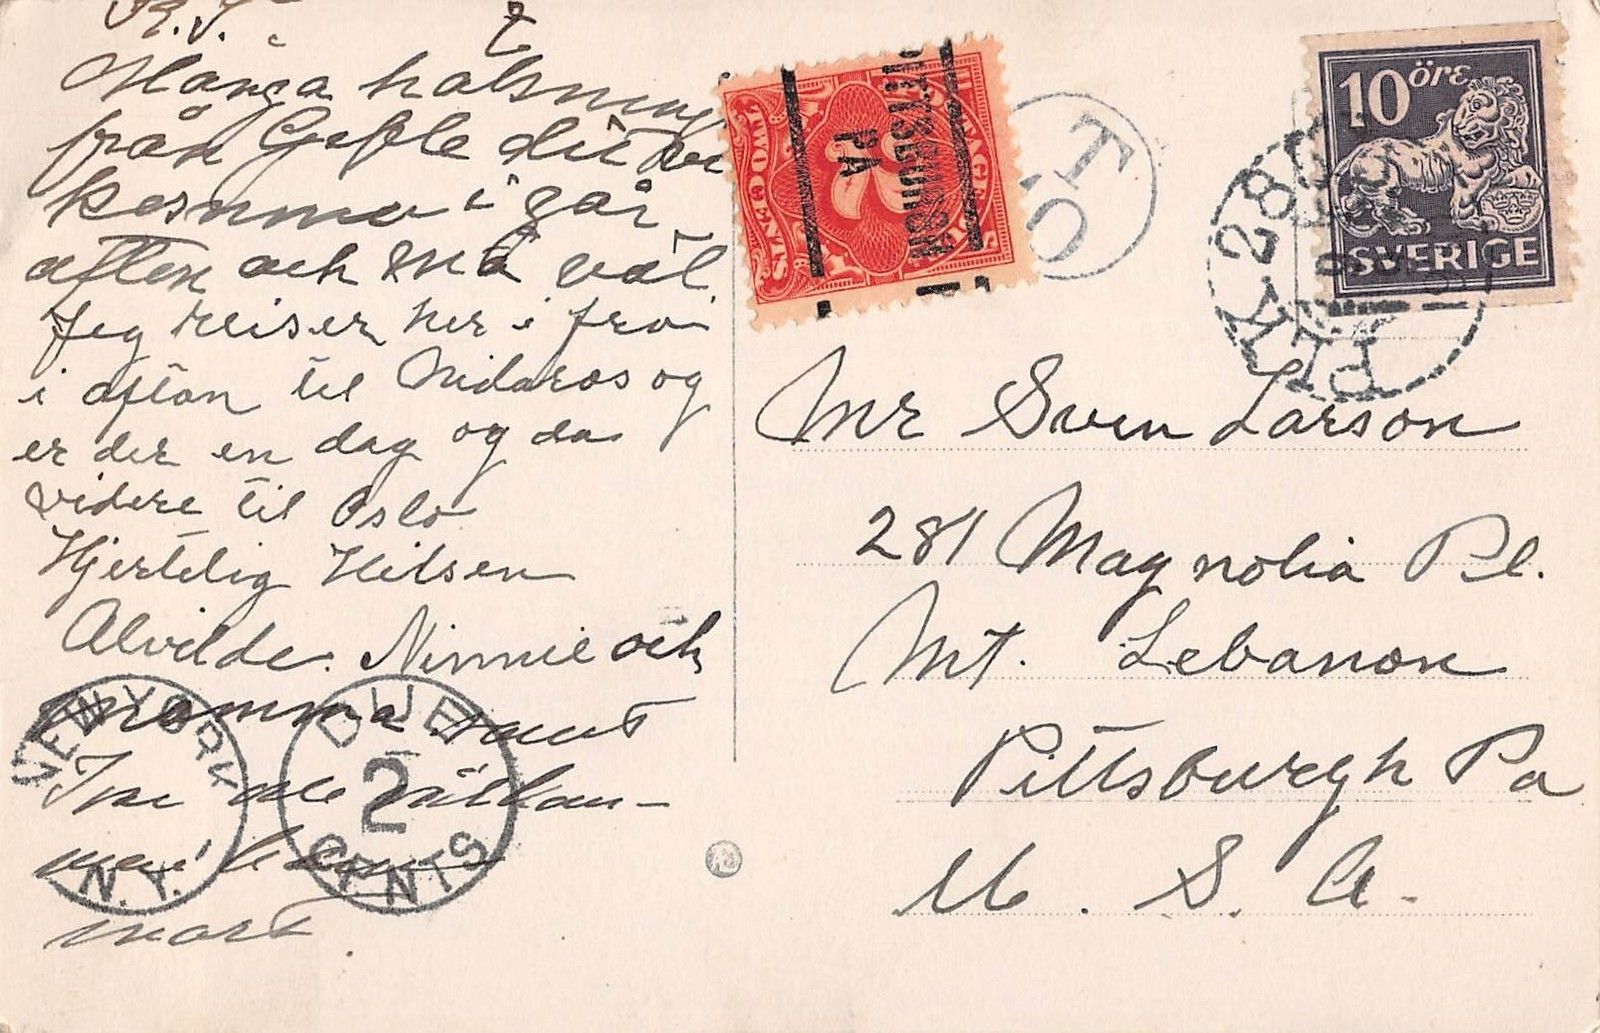 Många hälsning
från Gefle dit vi
komma i går
aften och må väl.
Jeg reiser her i fra
i aften til Nidaros og
er der en dag og da
videre til Oslo
Hjertelig Hilsen
Alvilde. Ninnie och
mamma samt
mart.
TWO CENTS
POSTAGE
2
PITTSBURGH
PA
T
O
10 öre
SVERIGE
PLK 285
Mr Sven Larson
281 Magnolia Pl.
Mt. Lebanon
Pittsburgh Pa
U. S. A.
NEW YORK
N.Y.
DUE
2
CENTS